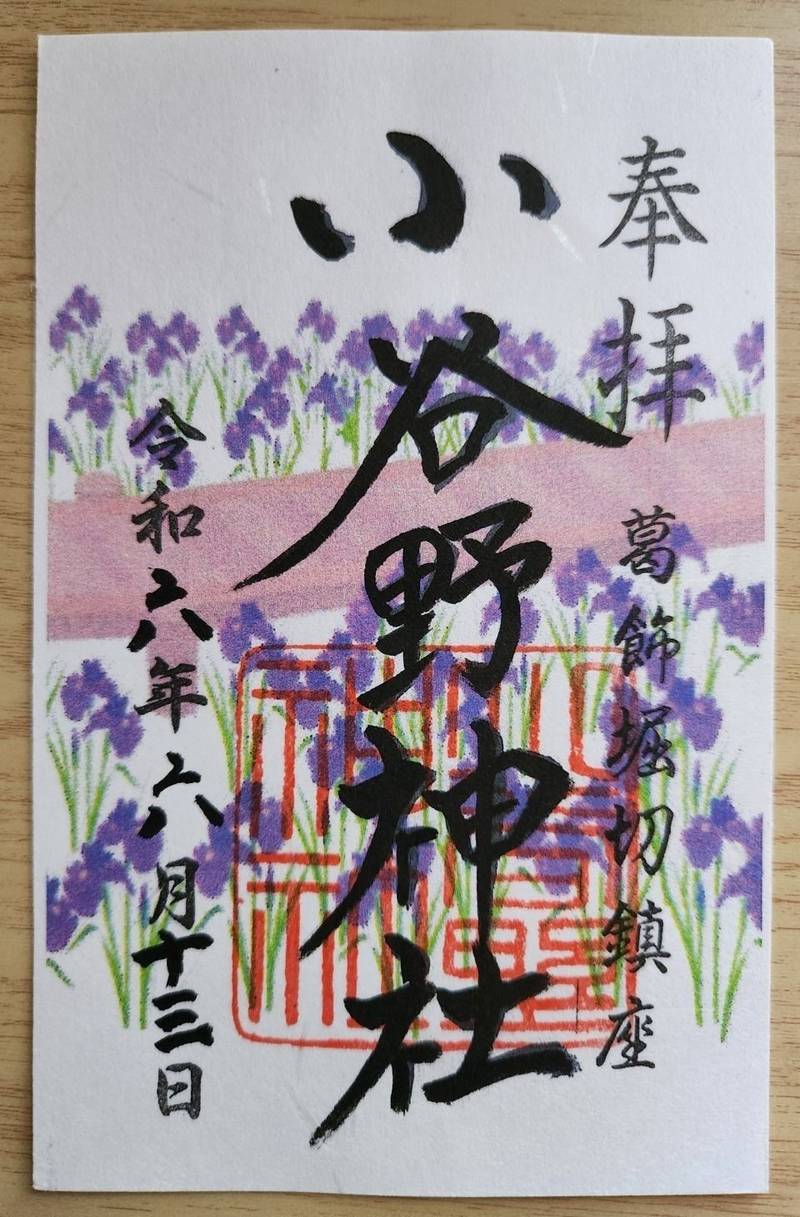 奉拝
葛飾堀切鎮座
小谷野神社
小谷野神社
令和六年六月十三日